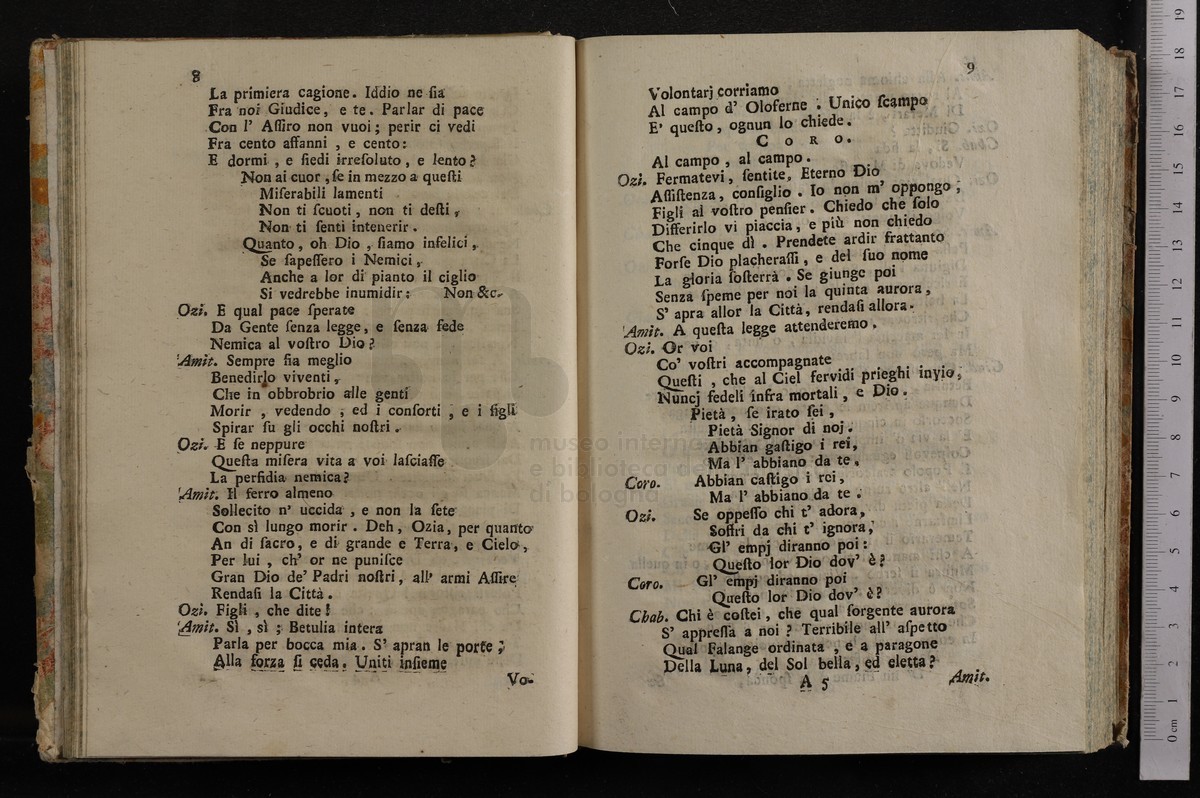 8
La primiera cagione. Iddio ne ſia
Fra noi Giudice, e te. Parlar di pace
Con l' Aſſiro non vuoi; perir ci vedi
Fra cento affanni , e cento:
E dormi , e ſiedi irreſoluto, e lento?
Non ai cuor , ſe in mezzo a queſti
Miſerabili lamenti
Non ti ſcuoti, non ti deſti,
Non ti ſenti intenerir.
Quanto, oh Dio , ſiamo infelici,
Se ſapeſſero i Nemici,
Anche a lor di pianto il ciglio
Si vedrebbe inumidir: Non &c.
Ozi. E qual pace ſperate
Da Gente ſenza legge, e ſenza fede
Nemica al voſtro Dio?
Amit. Sempre ſia meglio
Benedirlo viventi,
Che in obbrobrio alle genti
Morir , vedendo , ed i conſorti , e i figli
Spirar ſu gli occhi noſtri.
Ozi. E ſe neppure
Queſta miſera vita a voi laſciaſſe
La perfidia nemica?
Amit. Il ferro almeno
Sollecito n' uccida , e non la ſete
Con sì lungo morir. Deh, Ozia, per quanto
An di ſacro, e di grande e Terra, e Cielo,
Per lui , ch' or ne puniſce
Gran Dio de' Padri noſtri, all' armi Aſſire
Rendaſi la Città.
Ozi. Figli , che dite!
Amit. Sì , sì ; Betulia intera
Parla per bocca mia. S' apran le porte;
Alla forza ſi ceda. Uniti inſieme
Vo-
9
Volontarj corriamo
Al campo d' Oloferne . Unico ſcampo
E' queſto, ognun lo chiede.
CORO.
Al campo , al campo.
Ozi. Fermatevi, ſentite, Eterno Dio
Aſſiſtenza, conſiglio . Io non m' oppongo ;
Figli al voſtro penſier. Chiedo che ſolo
Differirlo vi piaccia, e più non chiedo
Che cinque dì . Prendete ardir frattanto
Forſe Dio placheraſſi, e del ſuo nome
La gloria ſoſterrà . Se giunge poi
Senza ſpeme per noi la quinta aurora,
S' apra allor la Città, rendaſi allora.
Amit. A queſta legge attenderemo.
Ozi. Or voi
Co' voſtri accompagnate
Queſti , che al Ciel fervidi prieghi inyio,
Nuncj fedeli infra mortali, e Dio.
Pietà , ſe irato ſei ,
Pietà Signor di noj.
Abbian gaſtigo i rei,
Ma l' abbiano da te.
Coro. Abbian caſtigo i rei,
Ma l' abbiano da te .
Ozi. Se oppeſſo chi t' adora,
Soffri da chi t' ignora,
Gl' empj diranno poi:
Queſto lor Dio dov' è?
Coro. Gl' empj diranno poi
Queſto lor Dio dov' è?
Chab. Chi è coſtei, che qual ſorgente aurora
S' appreſſa a noi ? Terribile all' aſpetto
Qual Falange ordinata , e a paragone
Della Luna, del Sol bella, ed eletta?
A 5
Amit.